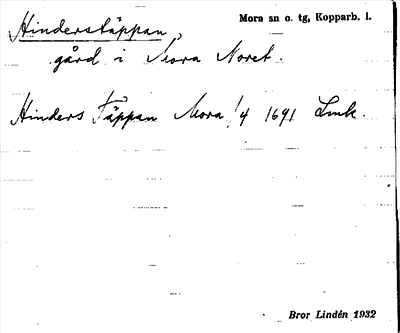 Hinderstäppan,
Mora sn o. tg, Kopparb. l.
gård i Mora Noret.
Hinders Täppan Mora 1/4 1691 Lmk.
Bror Lindén 1932